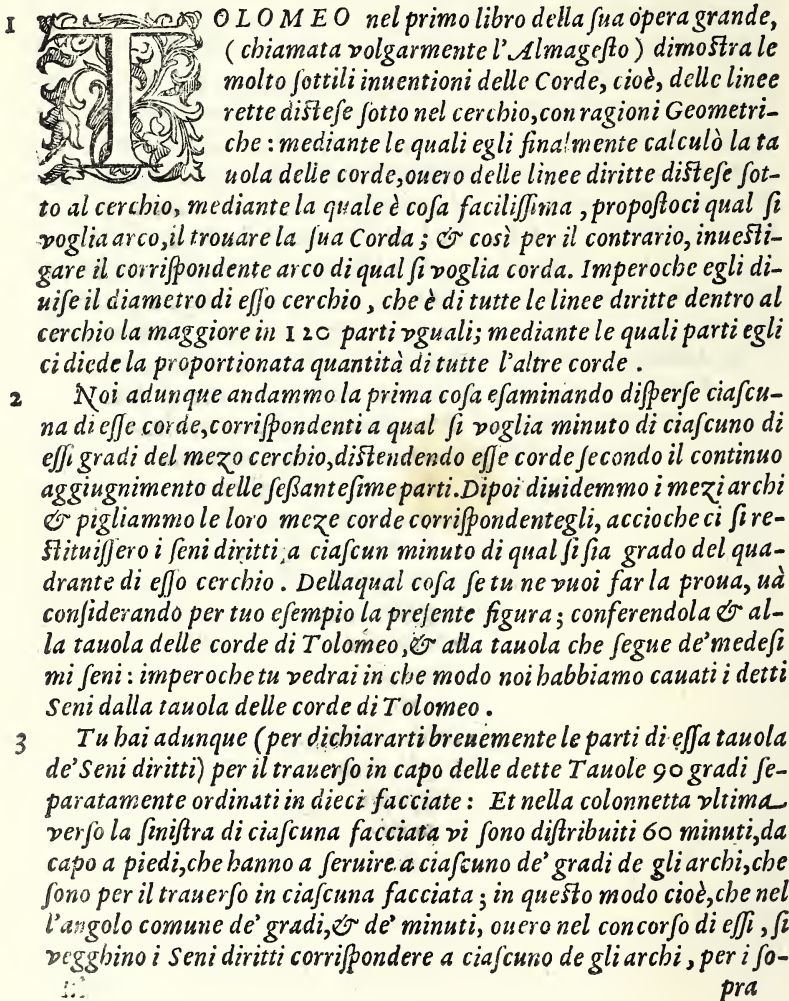 1 TOLOMEO nel primo libro della ſua opera grande,
(chiamata volgarmente l'Almageſto) dimoſtra le
molto ſottili inuentioni delle Corde, cioè, delle linee
rette diſteſe ſotto nel cerchio, con ragioni Geometri-
che: mediante le quali egli finalmente calculò la ta
uola delle corde, ouero delle linee diritte diſteſe ſot-
to al cerchio, mediante la quale è coſa faciliſſima, propoſtoci qual ſi
voglia arco, il trouare la ſua Corda; & così per il contrario, inueſti-
gare il corriſpondente arco di qual ſi voglia corda. Imperoche egli di-
uiſe il diametro di eſſo cerchio, che è di tutte le linee diritte dentro al
cerchio la maggiore in 120 parti vguali; mediante le quali parti egli
ci diede la proportionata quantità di tutte l'altre corde.
2 Noi adunque andammo la prima coſa eſaminando diſperſe ciaſcu-
na di eſſe corde, corriſpondenti a qual ſi voglia minuto di ciaſcuno di
eſſi gradi del mezo cerchio, diſtendendo eſſe corde ſecondo il continuo
aggiugnimento delle ſeßanteſime parti. Dipoi diuidemmo i mezi archi
& pigliammo le loro meze corde corriſpondentegli, accioche ci ſi re-
ſtituiſſero i ſeni diritti a ciaſcun minuto di qual ſi ſia grado del qua-
drante di eſſo cerchio. Dellaqual coſa ſe tu ne vuoi far la proua, uà
conſiderando per tuo eſempio la preſente figura; conferendola & al-
la tauola delle corde di Tolomeo, & alla tauola che ſegue de'medeſi
mi ſeni: imperoche tu vedrai in che modo noi habbiamo cauati i detti
Seni dalla tauola delle corde di Tolomeo.
3 Tu hai adunque (per dichiararti breuemente le parti di eſſa tauola
de'Seni diritti) per il trauerſo in capo delle dette Tauole 90 gradi ſe-
paratamente ordinati in dieci facciate: Et nella colonnetta vltima
verſo la ſiniſtra di ciaſcuna facciata vi ſono diſtribuiti 60 minuti, da
capo a piedi, che hanno a ſeruire a ciaſcuno de' gradi de gli archi, che
ſono per il trauerſo in ciaſcuna facciata; in queſto modo cioè, che nel
l'angolo comune de' gradi, & de' minuti, ouero nel concorſo di eſſi, ſi
vegghino i Seni diritti corriſpondere a ciaſcuno de gli archi, per i ſo-
pra